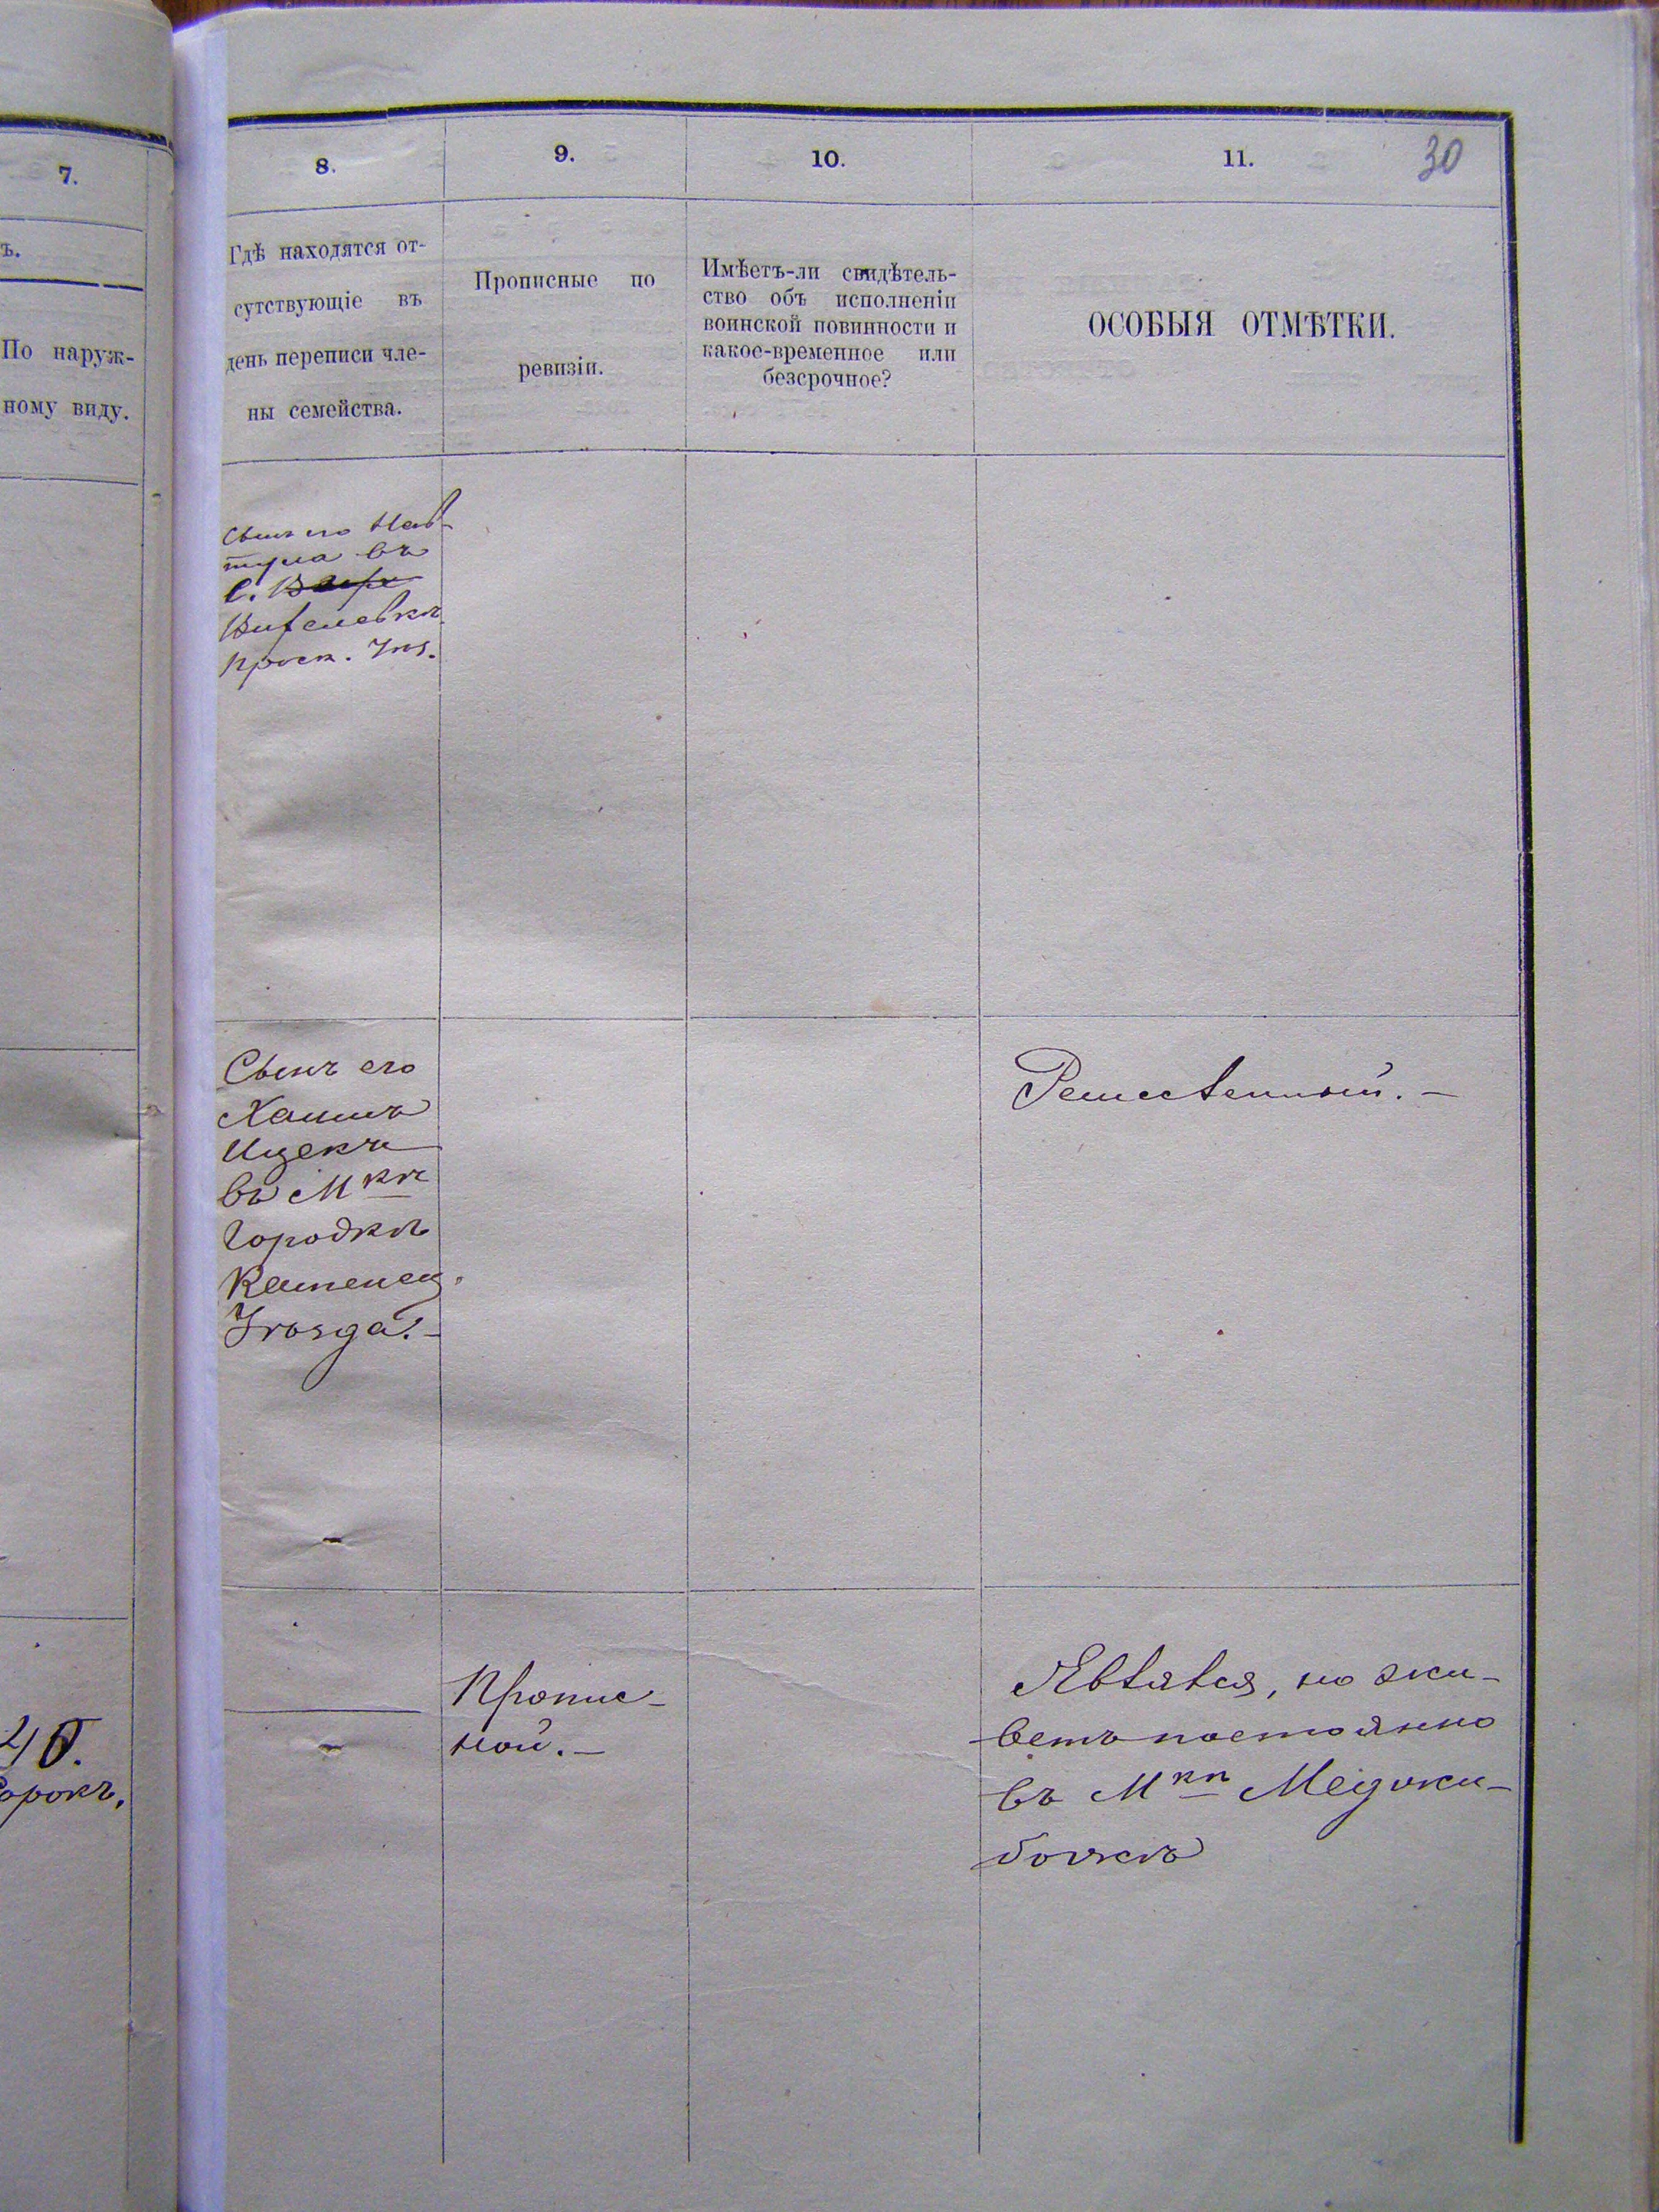 7.
ъ.
По наруж-
ному виду.
40.
Сорокъ.
8.
9.
10.
11.
30
Гдѣ находятся от-
сутствующіе въ
день переписи чле-
ны семейства.
Прописные по
ревизіи.
Имѣетъ-ли свидѣтель-
ство объ исполненіи
воинской повинности и
какое-временное или
безсрочное?
ОСОБЫЯ ОТМѢТКИ.
Сынъ его Наф-
тула въ
С.
Проск. Уѣз.
Сынъ его
Хаимъ
Ицекъ
въ Мкѣ
Городкѣ
Каменец.
Уѣзда.-
Ремесленный.-
Пропис-
ной.-
Явился, но жи-
ветъ постоянно
въ Мкѣ Меджи-
божѣ